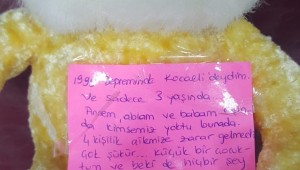 depreminde Kocaeli'deydim.
Ve sadece 3 yaşında
Annem, ablam ve babam
kimsemiz yoktu burada.
4 kişilik ailemize zarar gelmedi
Çok şükür... Küçük bir çocuk-
tum ve belki de hiçbir şey